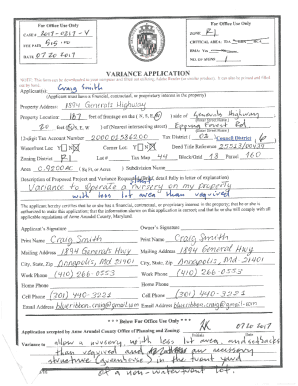 For Office Use Only
CASE # 2017-0217-V
FEE PAID
DATE 07 20 2017
For Office Use Only
ZONE R1
CRITICAL AREA:
BMA:
NO. OF SIGNS 1
VARIANCE APPLICATION
Applicant(s): Craig Smith
(Applicant must have a financial, contractual, or proprietary interest in the property)
Property Address: 1894 Generals Highway
Property Location: 187 feet of frontage on the (N, S, E, W) side of Generals Highway
20 feet (N, S, E, W) of (Nearest intersecting street) Epping Forest Rd
12-digit Tax Account Number 200001586200 Tax District 02 Council District 6
Waterfront Lot: Y N Corner Lot: Y N Deed Title Reference 25513/00039
Zoning District R1 Lot # Tax Map 44 Block/Grid 18 Parcel 160
Area 0.9200A (Sq Ft or Acres) Subdivision Name
Description of Proposed Project and Variance Requested (Explain in sufficient detail fully in letter of explanation)
Variance to operate a nursery on my property
with less lot area than required
The applicant hereby certifies that he or she has a financial, contractual, or proprietary interest in the property; that he or she is
authorized to make this application; that the information shown on this application is correct; and that he or she will comply with all
applicable regulations of Anne Arundel County, Maryland.
Applicant's Signature
Owner's Signature
Print Name Craig Smith
Print Name Craig Smith
Mailing Address 1894 Generals Hwy
Mailing Address 1894 Generals Hwy
City, State, Zip Annapolis, Md 21401
City, State, Zip Annapolis, MD 21401
Work Phone (410) 266-0553
Work Phone (410) 266-0553
Home Phone
Home Phone
Cell Phone (301) 440-3221
Cell Phone (301) 440-3221
Email Address blueribbon.craig@gmail.com
Email Address blueribbon.craig@gmail.com
* * * Below For Office Use Only * * *
Application accepted by Anne Arundel County Office of Planning and Zoning: 07 20 2017
Variance to allow a nursery with less lot area and setbacks
than required and accessory
structure in the front yard
of a non-waterfront lot.